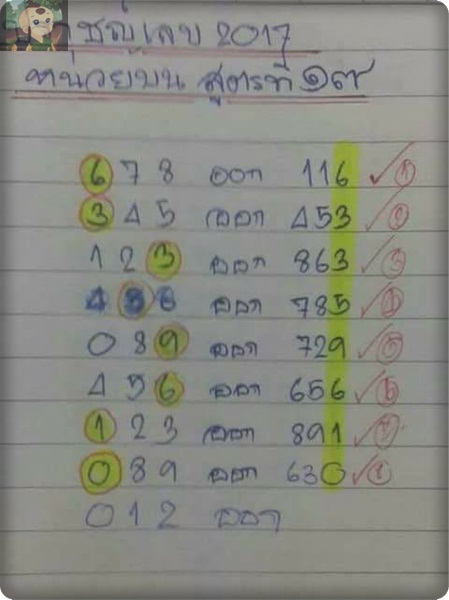 ชญ์เลข 2017
หน่วยบน สูตรที่ ๑๗
6 7 8 ออก 116 ✓ 1
3 4 5 ออก 453 ✓ 2
1 2 3 ออก 863 ✓ 3
4 5 6 ออก 785 ✓ 4
0 8 9 ออก 729 ✓ 5
4 5 6 ออก 656 ✓ 6
1 2 3 ออก 891 ✓ 7
0 8 9 ออก 630 ✓ 8
0 1 2 ออก